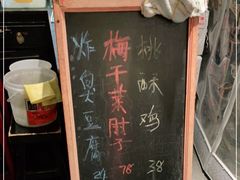 桃酥鸡 38
梅干菜肘子 78
炸臭豆腐